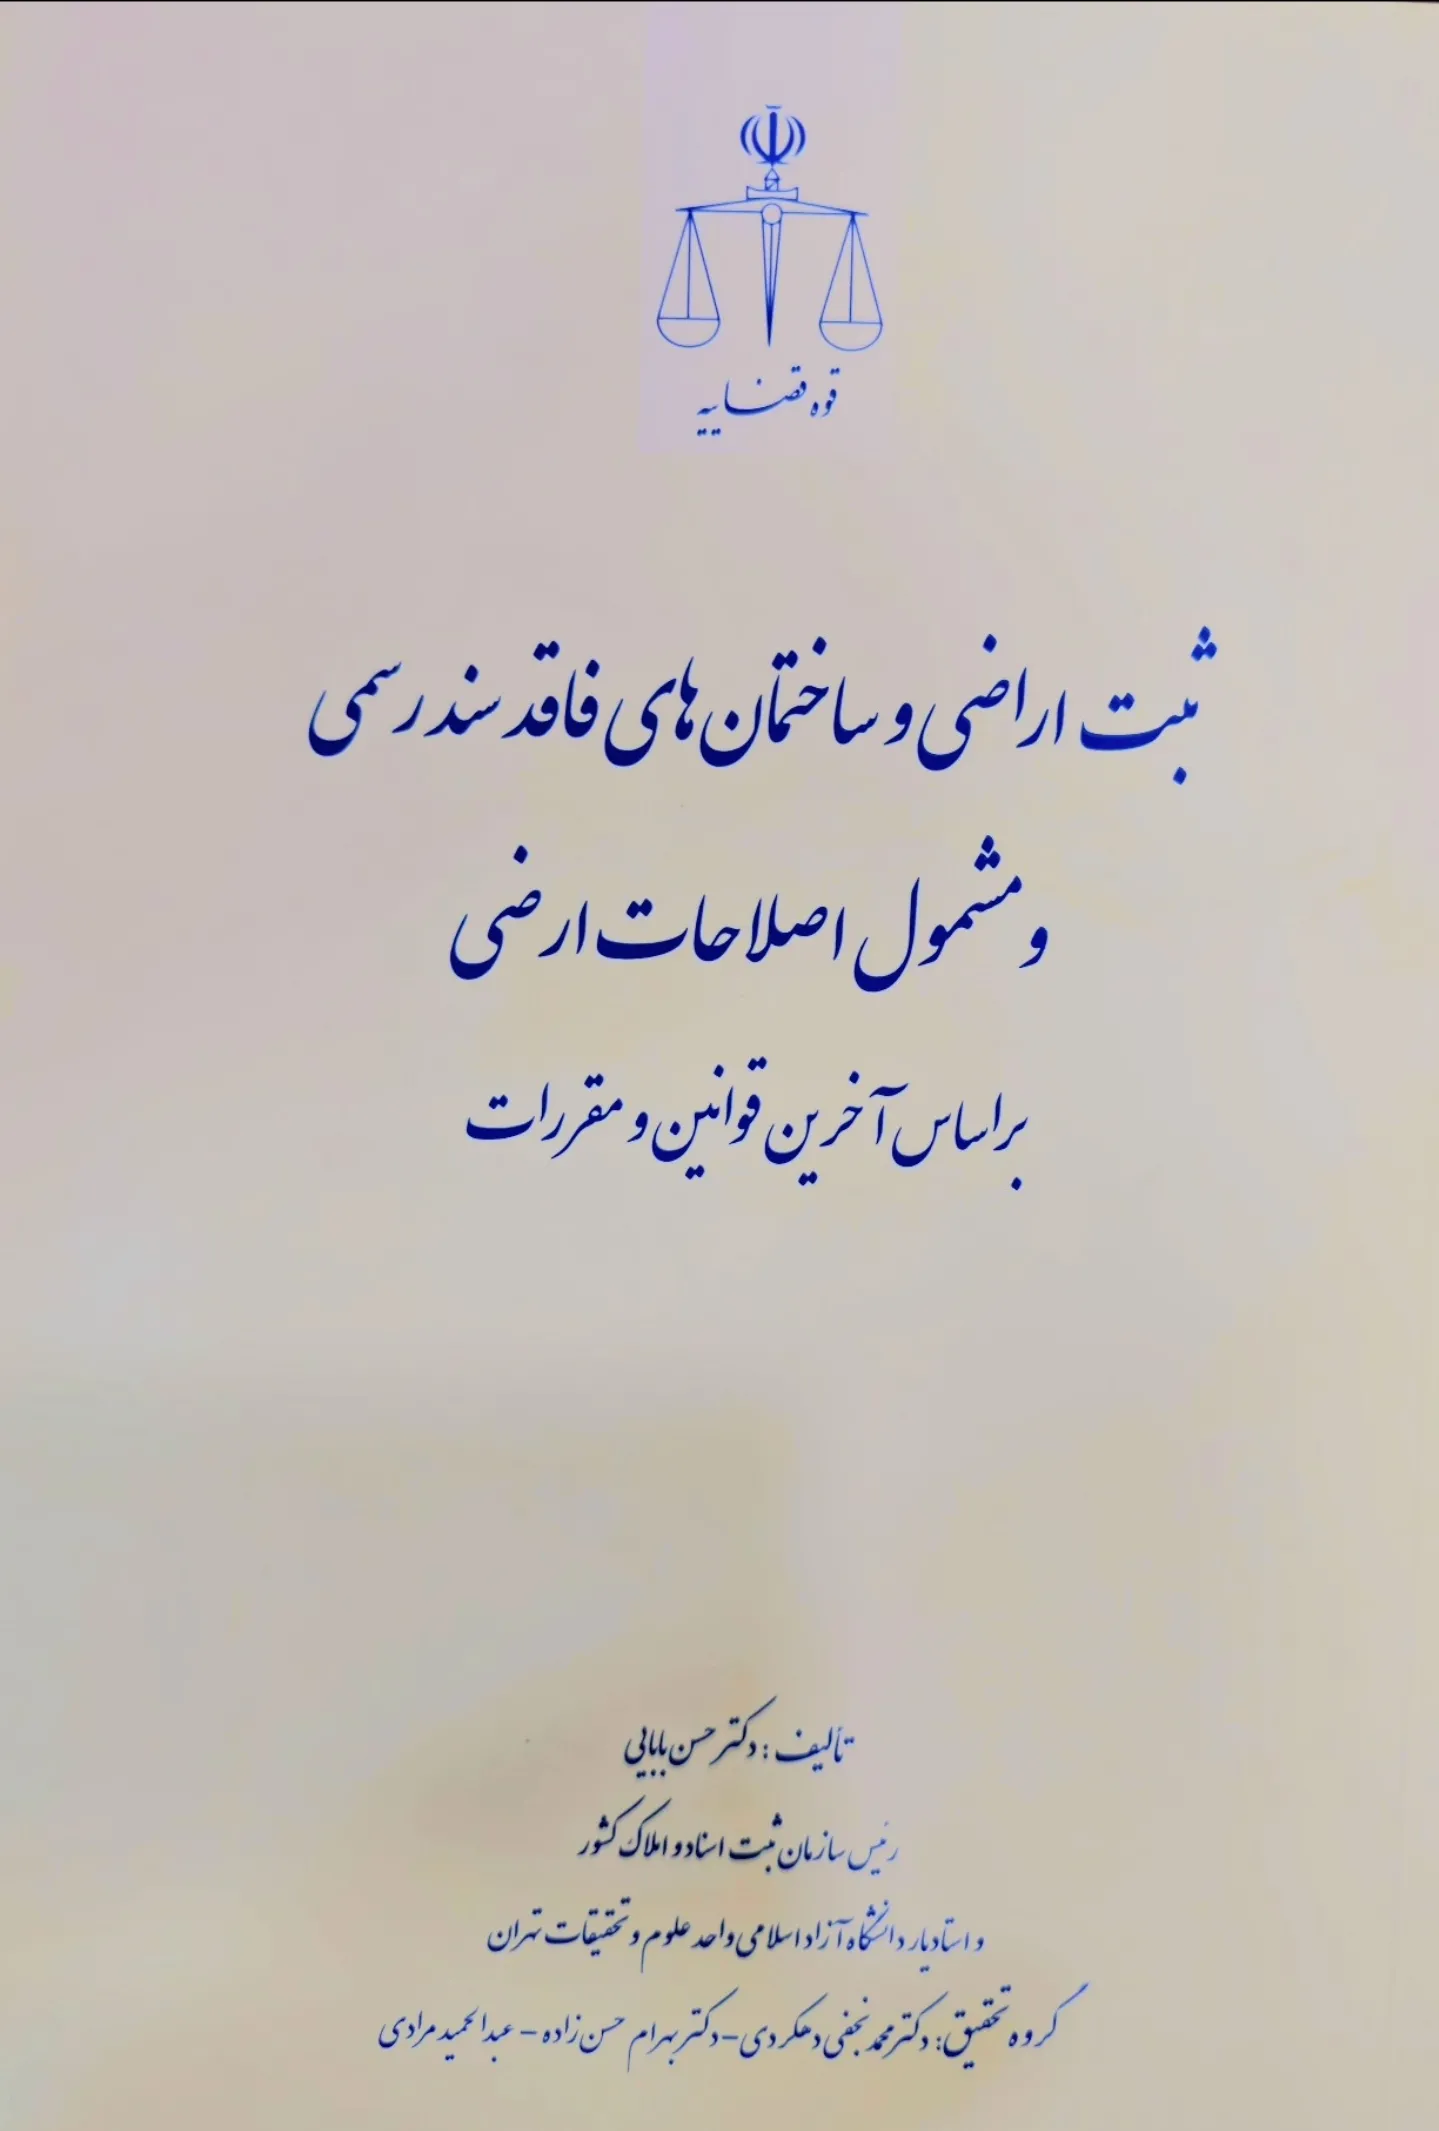 قوه قضاییه
ثبت اراضی و ساختمان های فاقد سند رسمی
و مشمول اصلاحات ارضی
بر اساس آخرین قوانین و مقررات
تألیف : دکتر حسن بابایی
رئیس سازمان ثبت اسناد و املاک کشور
و استادیار دانشگاه آزاد اسلامی واحد علوم و تحقیقات تهران
گروه تحقیق: دکتر محمد نجفی دهکردی - دکتر بهرام حسن زاده - عبدالحمید مرادی